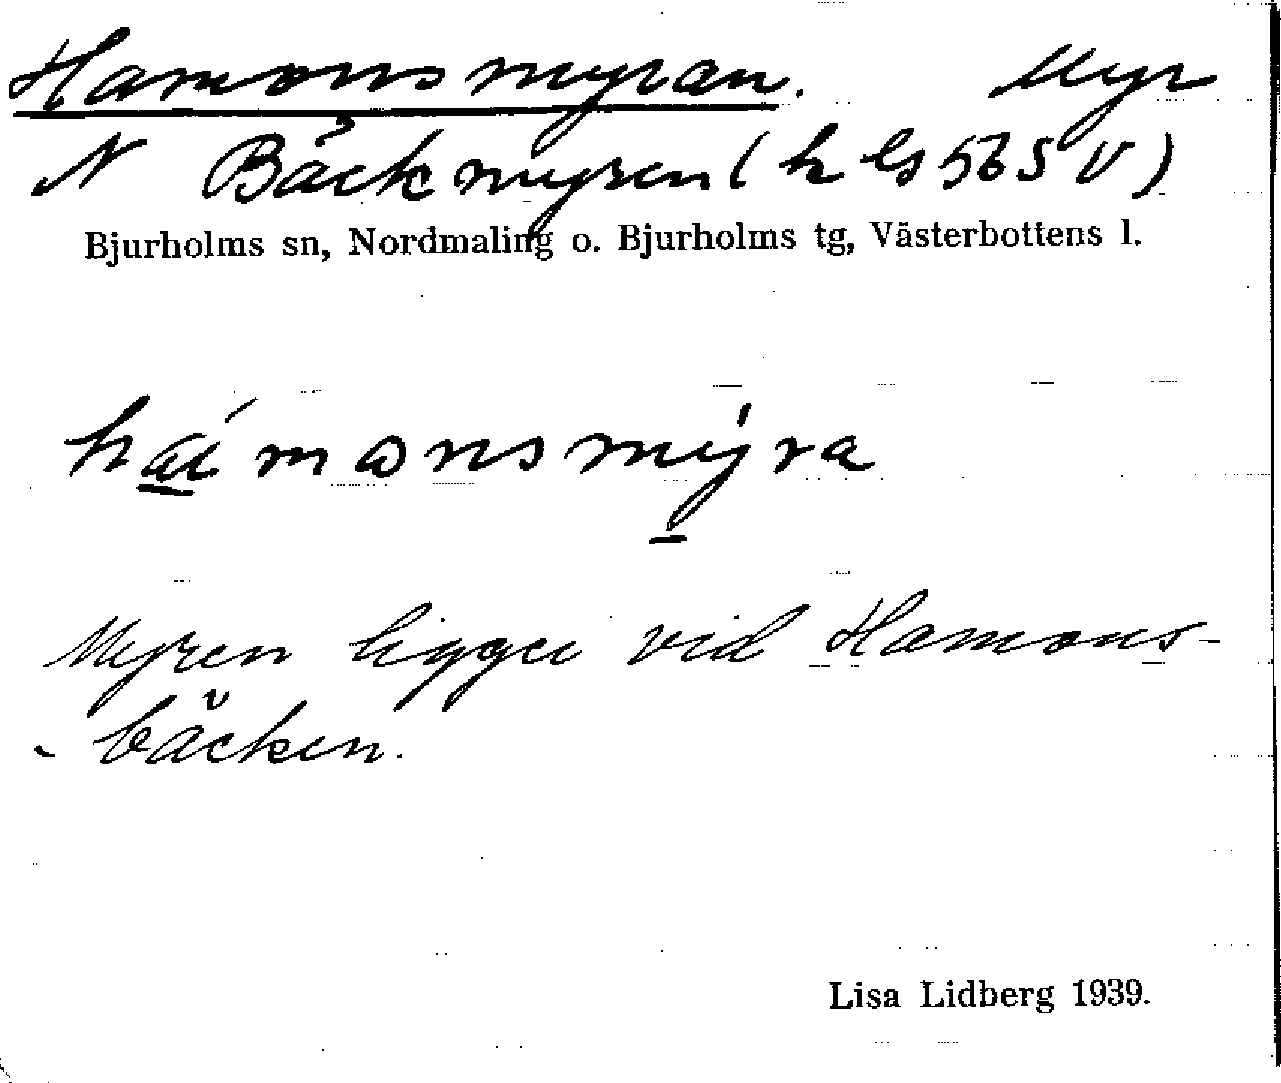 Hamonsmyran. Myr
N Bäckmyren (h ls 565 V)
Bjurholms sn, Nordmaling o. Bjurholms tg, Västerbottens l.
Myren ligger vid Hamons-
- bäcken.
Lisa Lidberg 1939.